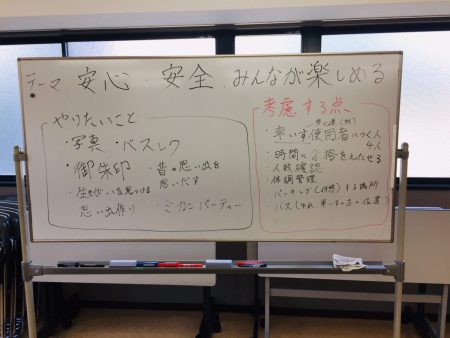 テーマ 安心・安全 みんなが楽しめる
やりたいこと
・写真・バスレク
・御朱印
・昔の思い出を
思いだす
・生きがいを見つける
・思い出作り
・ミカンパーティー
考慮する点、
・車いす使用者につく人
4人
・時間に余裕をもたせる
人数確認
体調管理
パーキング(休憩)する場所
・バス(ゆれ 車いすの方の位置)